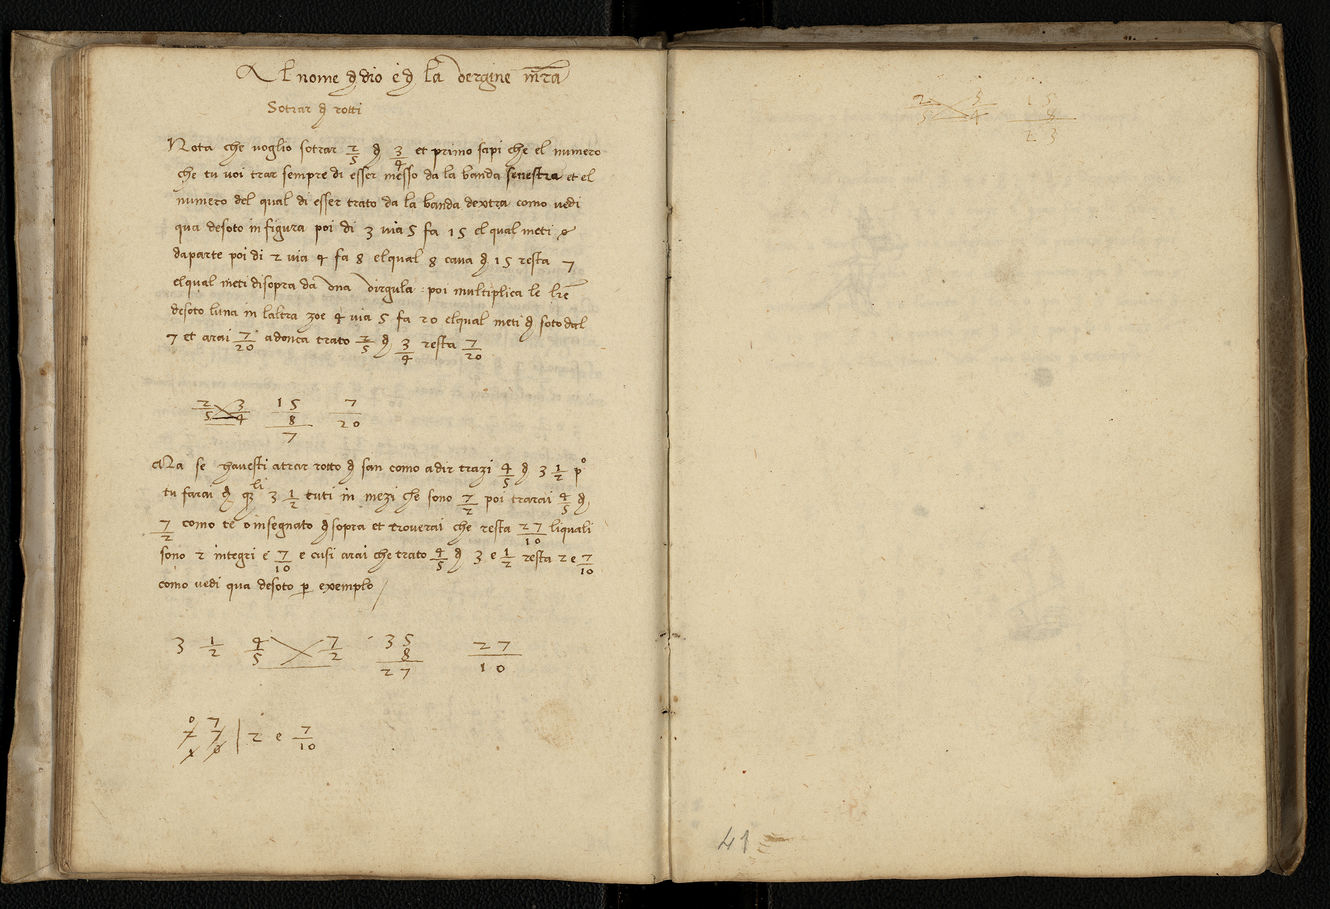 Al nome d dio e d la vergine mra
Sotrar d rotti
Nota che voglio sotrar 2/5 d 3/4 et primo sapi che el numero
che tu voi trar sempre di esser messo da la banda senestra et el
numero del qual di esser trato da la banda dextra como vedi
qua desoto in figura poi di 3 via 5 fa 15 el qual meti
daparte poi di 2 via 4 fa 8 elqual 8 cava d 15 resta 7
elqual meti disopra da una virgula : poi multiplica le
desoto luna in laltra zoe 4 via 5 fa 20 elqual meti d soto dal
7 et arai 7/20 adonca trato 2/5 d 3/4 resta 7/20
2/5 3/4 15 7/20
8
7
Ma se havesti atrar rotto d san como adir trazi 4/5 d 3 1/2 po
tu farai d qli 3 1/2 tuti in mezi che sono 7/2 poi trarai 4/5 d
7/2 como te o insegnato d sopra et troverai che resta 27/10 liquali
sono 2 integri e 7/10 e cusi arai che trato 4/5 d 3 e 1/2 resta 2 e 7/10
como vedi qua desoto p exemplo
3 1/2 4/5 7/2 35 27/10
8
27
0 7
2 7 | 2 e 7/10
1 0
2/5 3/4 15
8
23
41